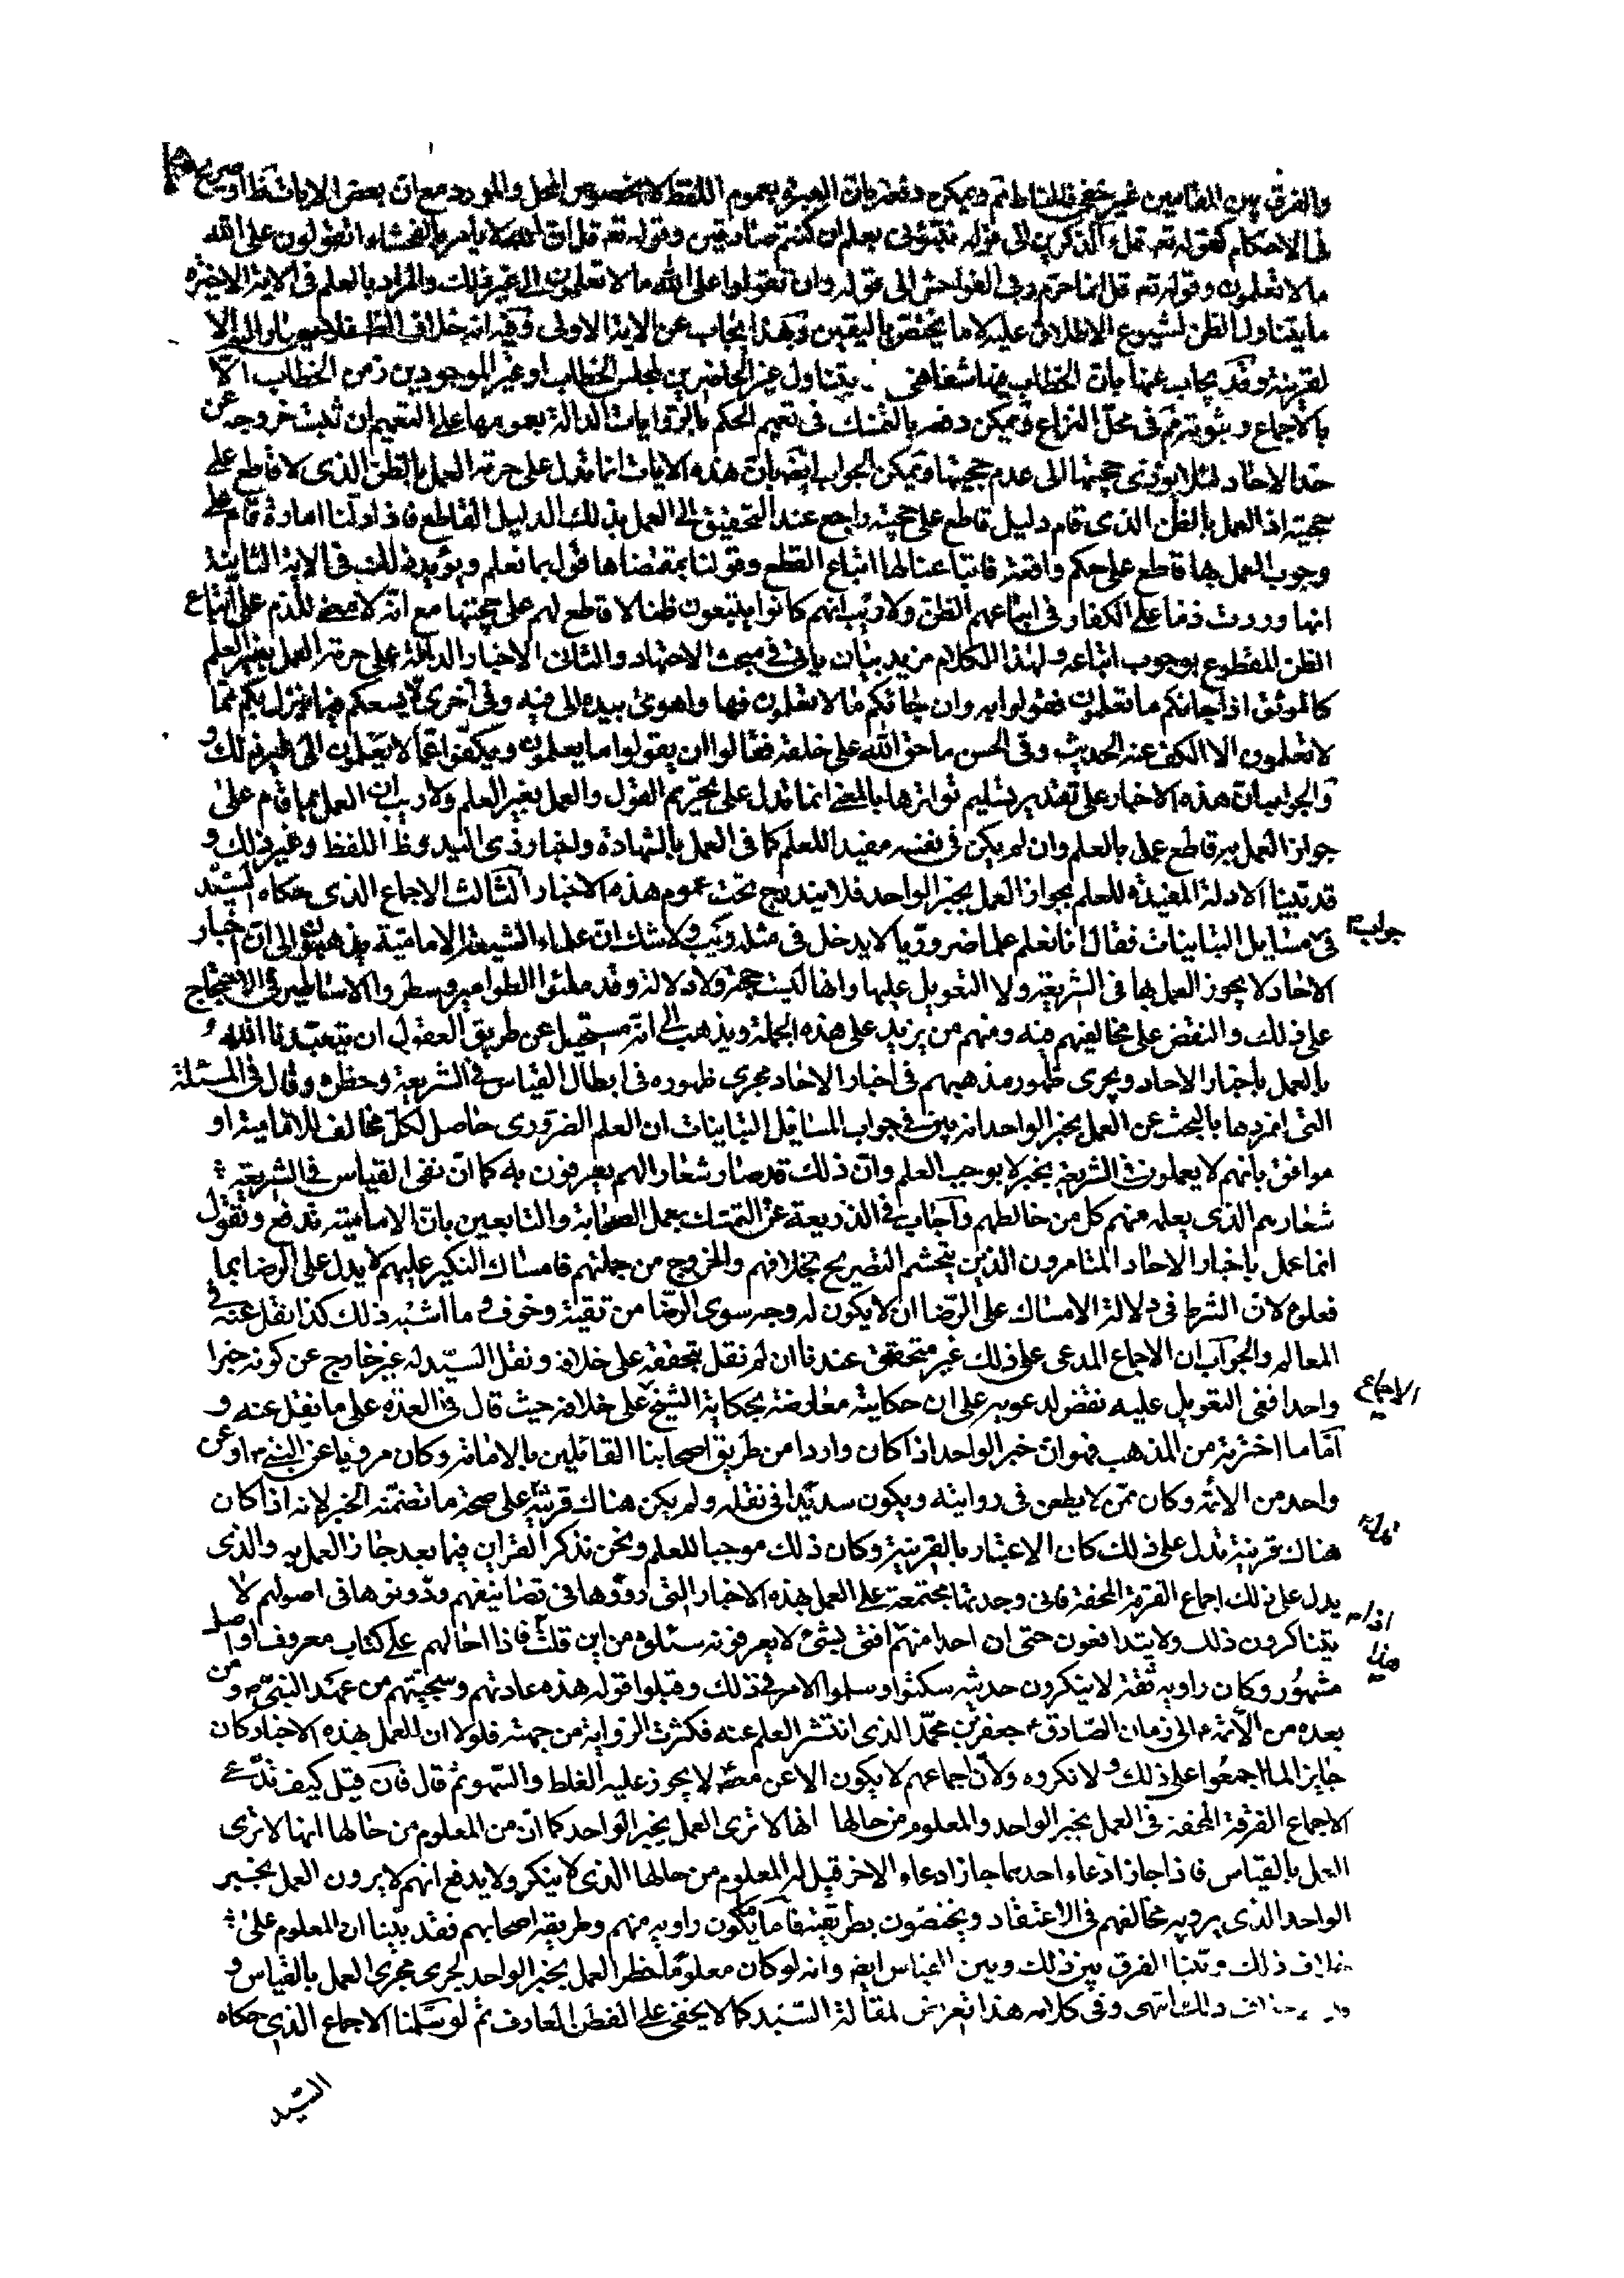 والفرق بين المقامين غير خفي فالمناط تم ويمكن دفعه بان العبرة بعموم اللفظ لا بخصوص المحل والمورد مع ان بعض الايات صريح
في الاحكام كقوله تع قل آلذكرين الى قوله نبئوني بعلم ان كنتم صادقين وقوله تع قل ان الله لا يأمر بالفحشاء اتقولون على الله
ما لا تعلمون وقوله تع قل انما حرم ربي الفواحش الى قوله وان تقولوا على الله ما لا تعلمون الى غير ذلك والمراد بالعلم في الاية الاخيرة
ما يتناول الظن لشيوع الاطلاق عليه لا ما يختص باليقين وبهذا يجاب عن الاية الاولى وفيه انه خلاف الظ فلا الا
لقرينة وقد يجاب عنها بان الخطاب فيها شفاهي يتناول غير الحاضرين لمجلس الخطاب او غير الموجودين زمن الخطاب الا
بالاجماع وثبوته ثم في محل النزاع ويمكن دفعه بالتمسك في تعميم الحكم بالروايات الدالة بعمومها على التعميم ان ثبت خروجه عن
حد الاحاد لئلا يؤدي حجيتها الى عدم حجيتها ويمكن الجواب ايضا بان هذه الايات انما تدل على حرمة العمل بالظن الذي لا قاطع على
حجيته اذ العمل بالظن الذي قام دليل قاطع على حجيته راجع عند التحقيق الى العمل بذلك الدليل القاطع فاذا دلتنا امارة قام على
وجوب العمل بها قاطع على حكم واقعة فاتباعنا لها اتباع القطع وقولنا بمقتضاها قول بما نعلم ويؤيد ذلك في الاية الثانية
انها وردت ذما على الكفار في اتباعهم الظن ولا ريب انهم كانوا يتبعون ظنا لا قاطع لهم على حجيتها مع انه لا معنى للذم على اتباع
الظن المقطوع بوجوب اتباعه ولهذا الكلام مزيد بيان ياتي في مبحث الاجتهاد والثاني الاخبار الدالة على حرمة العمل بغير العلم
كالموثق اذا جائكم ما تعلمون فقولوا به وان جائكم ما لا تعلمون فها واهوى بيده الى فيه وفي اخرى لا يسعكم فيما ينزل بكم مما
لا تعلمون الا الكف عنه الحديث وفي الحسن ما حق الله على خلقه فقال ان يقولوا ما يعلمون ويكفوا عما لا يعلمون الى غير ذلك
والجواب ان هذه الاخبار على تقدير تسليم تواترها بالمعنى انما تدل على تحريم القول والعمل بغير العلم ولا ريب ان العمل بما قام على
جواز العمل به قاطع عمل بالعلم وان لم يكن في نفسه مفيدا للعلم كما في العمل بالشهادة واخبار ذي اليد وظ اللفظ وغير ذلك و
قد بينا الادلة المفيدة للعلم بجواز العمل بخبر الواحد فلا يندرج تحت عموم هذه الاخبار الثالث الاجماع الذي حكاه السيد
في مسايل التباينات فقال انا نعلم علما ضروريا لا يدخل في مثله ريب ولا شك ان علماء الشيعة الامامية يذهبون الى ان اخبار
جواب
الاحاد لا يجوز العمل بها في الشريعة ولا التعويل عليها وانها ليست حجة ولا دلالة وقد ملئوا الطوامير وسطروا الاساطير في الاحتجاج
على ذلك والنقض على مخالفيهم فيه ومنهم من يزيد على هذه الجملة ويذهب الى انه مستحيل عن طريق العقول ان يتعبدنا الله
بالعمل باخبار الاحاد ويجري ظهور مذهبهم في اخبار الاحاد مجرى ظهوره في ابطال القياس في الشريعة وحظره وقال في المسئلة
التي افردها بالبحث عن العمل بخبر الواحد انه بين في جواب المسايل التباينات ان العلم الضروري حاصل لكل مخالف للامامية او
موافق بانهم لا يعملون في الشريعة بخبر لا يوجب العلم وان ذلك قد صار شعارا لهم يعرفون به كما ان نفي القياس في الشريعة
شعارهم الذي يعلمه منهم كل من خالطهم واجاب في الذريعة عن التمسك بعمل الصحابة والتابعين بان الامامية تدفع وتقول
انما عمل باخبار الاحاد المتامرون الذين يتحشم التصريح بخلافهم والخروج من جملتهم فامساك النكير عليهم لا يدل على الرضا بما
فعلوه لان الشرط في دلالة الامساك على الرضا ان لا يكون له وجه سوى الرضا من تقية وخوف وما اشبه ذلك كذا نقل عنه في
المعالم والجواب ان الاجماع المدعى على ذلك غير متحقق عندنا ان لم نقل بتحققه على خلافه ونقل السيد له غير خارج عن كونه خبرا
واحدا ففي التعويل عليه نقض لدعويه على ان حكايته معارضة بحكاية الشيخ على خلافه حيث قال في العدة على ما نقل عنه و
الاجماع
اما ما اخترته من المذهب فهو ان خبر الواحد اذا كان واردا من طريق اصحابنا القائلين بالامامة وكان مرويا عن النبي ص او عن
واحد من الائمة وكان ممن لا يطعن في روايته ويكون سديدا في نقله ولم يكن هناك قرينة على صحة ما تضمنه الخبر لانه اذا كان
هناك قرينة تدل على ذلك كان الاعتبار بالقرينة وكان ذلك موجبا للعلم ونحن نذكر القراين فيما بعد جاز العمل به والذي
يدل على ذلك اجماع الفرقة المحقة فاني وجدتها مجتمعة على العمل بهذه الاخبار التي رووها في تصانيفهم ودونوها في اصولهم لا
يتناكرون ذلك ولا يتدافعون حتى ان احدا منهم افتى بشيء لا يعرفونه سئلوه من اين قلت فاذا احالهم على كتاب معروف او اصل
اذا
هذا
مشهور وكان راويه ثقة لا ينكرون حديثه سكتوا وسلموا الامر في ذلك وقبلوا قوله هذه عادتهم وسجيتهم من عهد النبي ص ومن
بعده من الائمة الى زمان الصادق ع جعفر بن محمد الذي انتشر العلم عنه فكثرت الرواية من جهته فلولا ان العمل بهذه الاخبار كان
جايزا لما اجمعوا على ذلك ولانكروه ولان اجماعهم لا يكون الا عن معصوم لا يجوز عليه الغلط والسهو ثم قال فان قيل كيف تدعي
الاجماع الفرقة المحقة في العمل بخبر الواحد والمعلوم من حالها انها لا ترى العمل بخبر الواحد كما ان من المعلوم من حالها انها لا ترى
العمل بالقياس فاذا جاز ادعاء احدهما جاز ادعاء الاخر قيل له المعلوم من حالها الذي لا ينكر ولا يدفع انهم لا يرون العمل بخبر
الواحد الذي يرويه مخالفهم في الاعتقاد ويختصون بطريقته فاما ما يكون راويه منهم وطريقه اصحابهم فقد بينا ان المعلوم على
خلاف ذلك وبينا الفرق بين ذلك وبين القياس ايض وانه لو كان معلوما حظر العمل بخبر الواحد لجرى مجرى العمل بالقياس و
خلاف ذلك انتهى وفي كلامه هذا تعريض لمقالة السيد كما لا يخفى على الفطن العارف ثم لو سلمنا الاجماع الذي حكاه
السيد